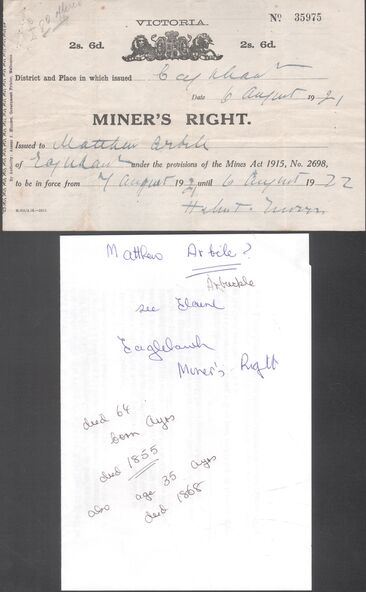 VICTORIA.
Nº 35975
2s. 6d. 2s. 6d.
District and Place in which issued Eaglehawk
Date 6 August 1921
MINER'S RIGHT.
Issued to Matthew Arbile
of Eaglehawk under the provisions of the Mines Act 1915, No. 2698,
to be in force from 7 August 1921 until 6 August 1922
Matthew Arbile?
Arbuckle
see Elaine
Eaglehawk
Miner's Right
died 64
born Ayrs
died 1855
also age 35 Ayrs
died 1868